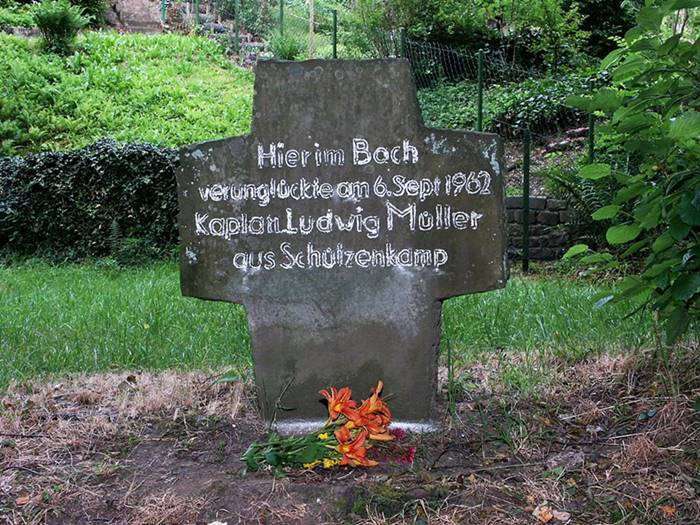 Hier im Bach
verunglückte am 6. Sept 1962
Kaplan Ludwig Müller
aus Schützenkamp